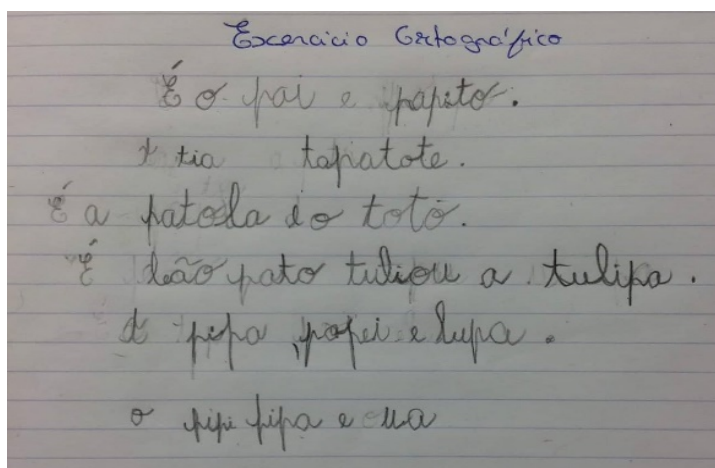 Excercicio Ortográfico
É o pai e papito.
tia tapatote.
É a patola do totó.
É leão pato tuliou a tulipa.
pipa, papei e lupa.
o pipi pipa e ua